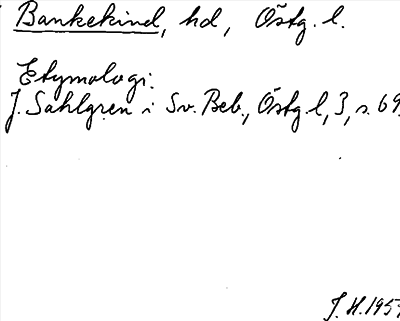 Bankekind, hd, Östg. l.
Etymologi:
J. Sahlgren i Sv. Beb., Östg. l, 3, s. 69.
J. H. 195